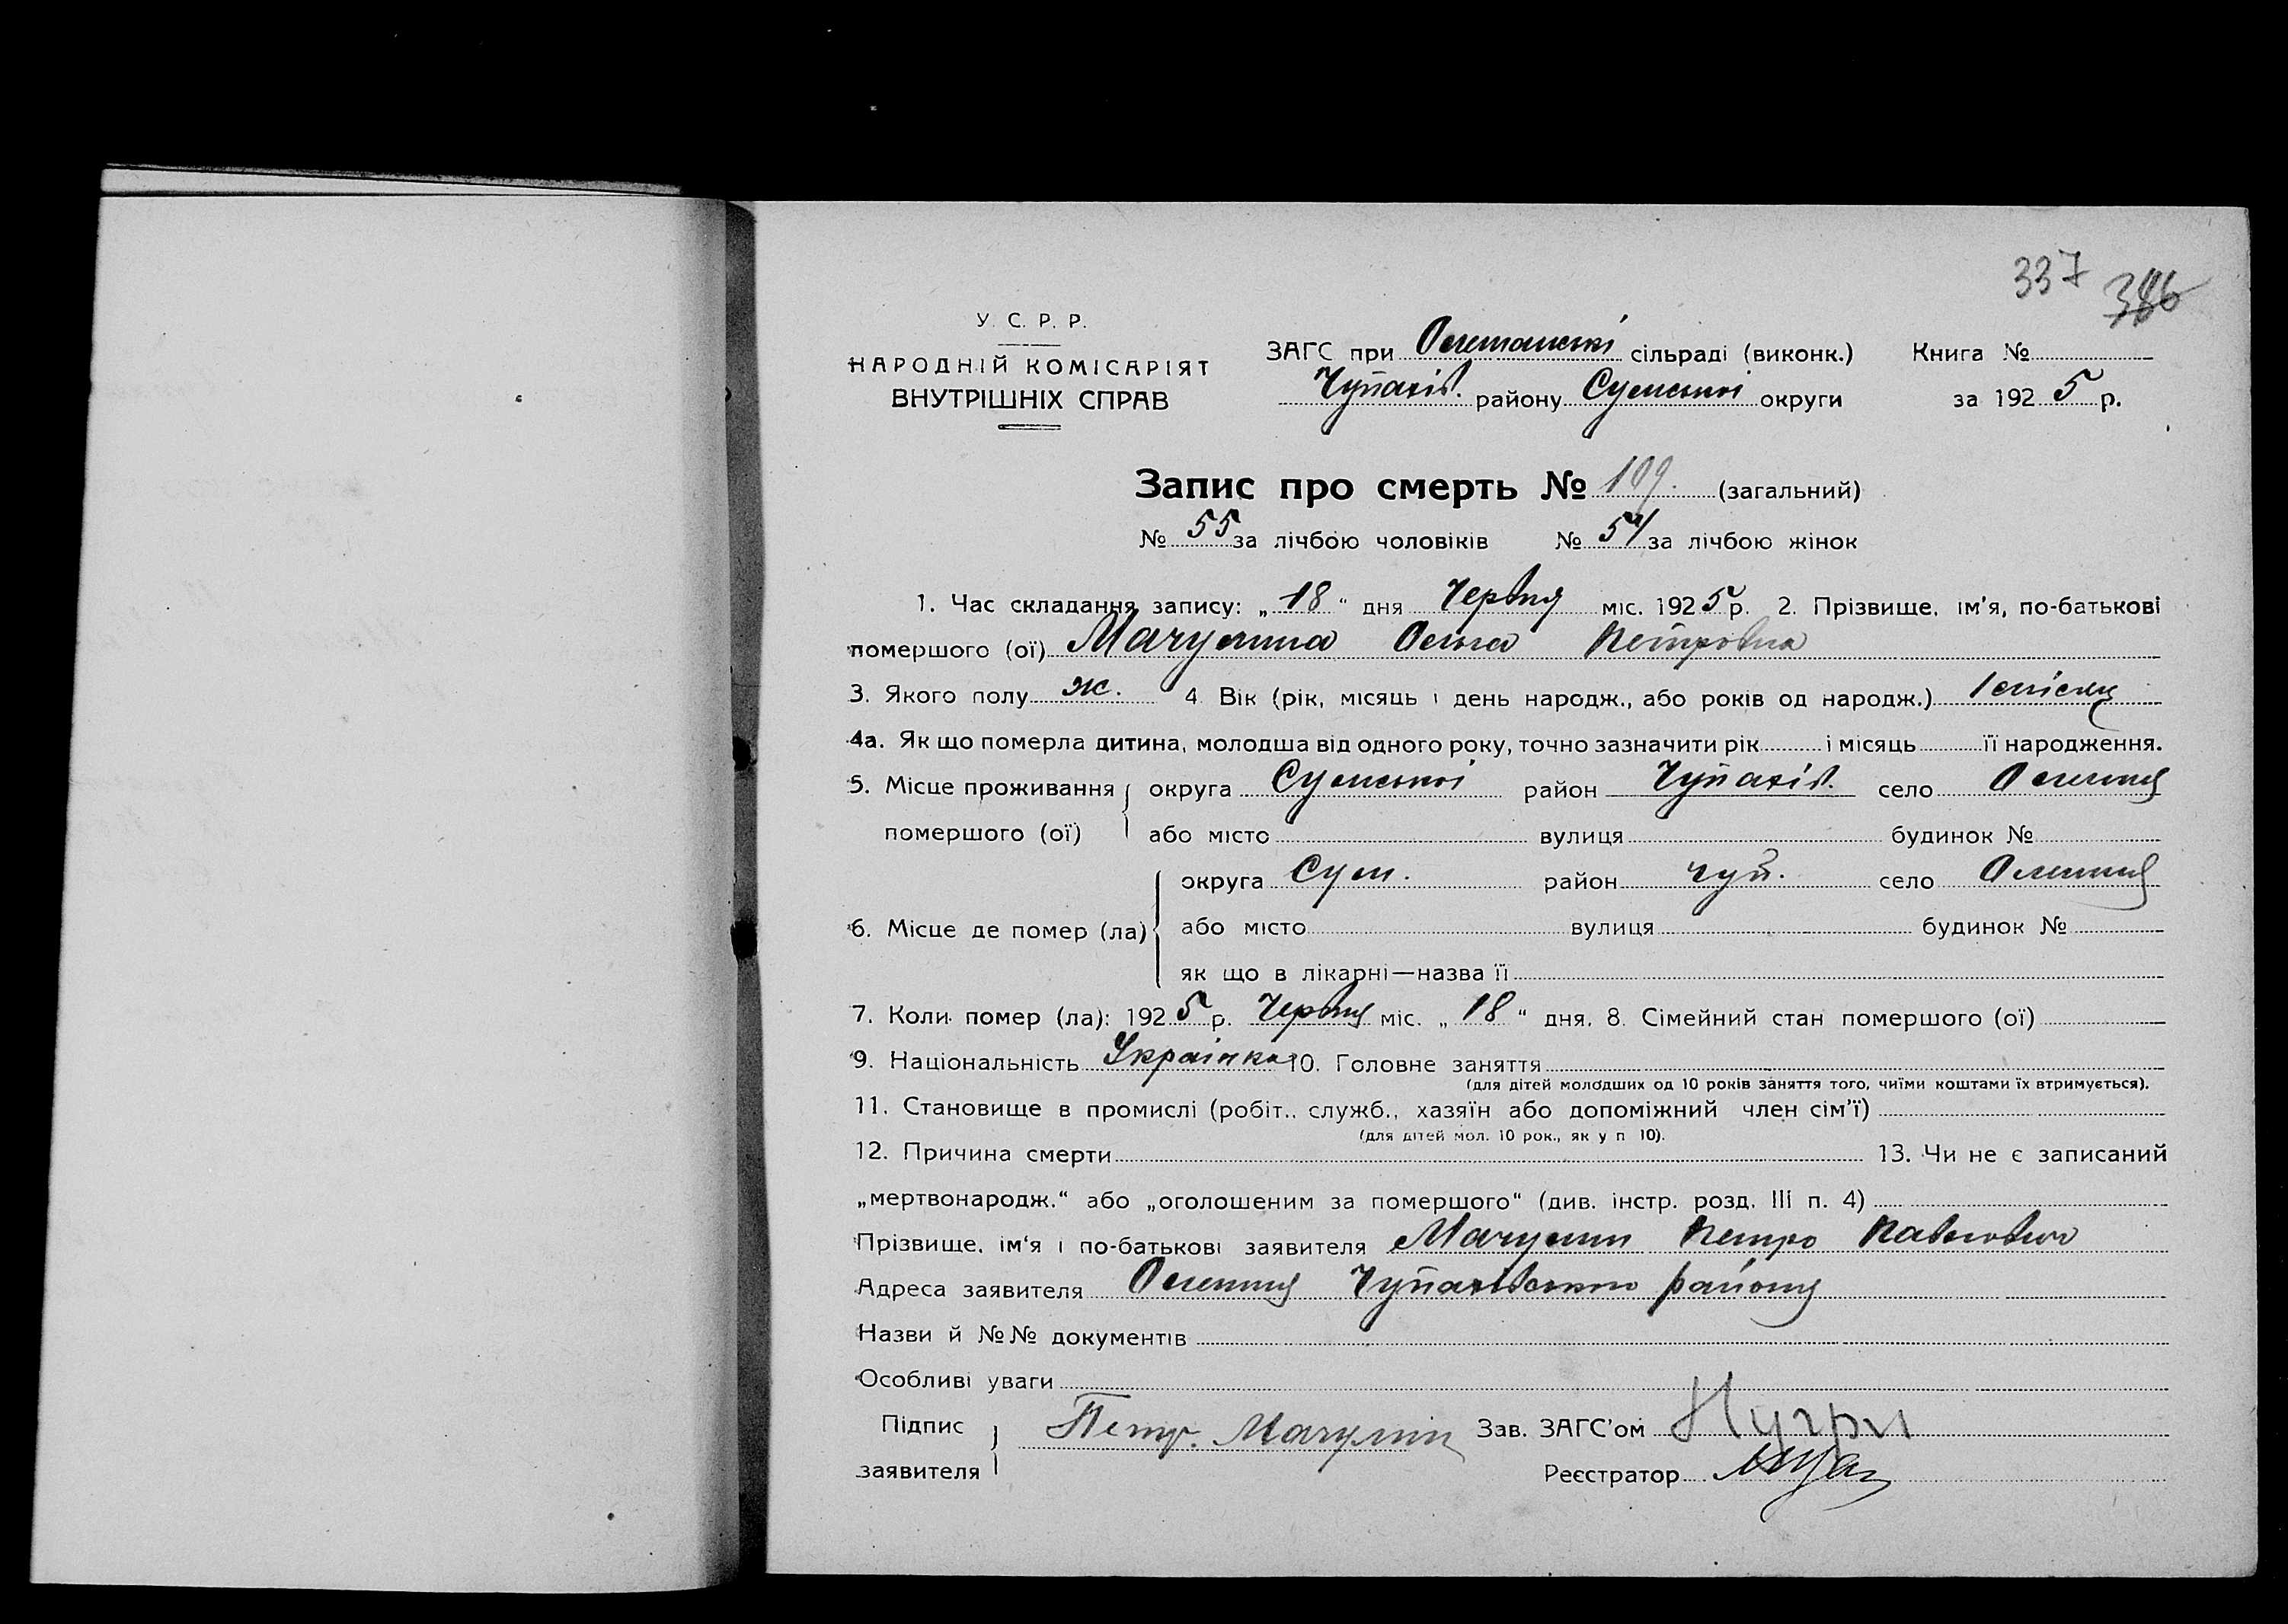 337 386
У. С. Р. Р.
НАРОДНІЙ КОМІСАРІЯТ
ВНУТРІШНІХ СПРАВ
ЗАГС при Олешанські сільраді (виконк.) Книга №
Чупахів. району Сумської округи за 1925 р.
Запис про смерть № 109. (загальний)
№ 55 за лічбою чоловіків № 54 за лічбою жінок
1. Час складання запису: „ 18 “ дня Червня міс. 1925 р. 2. Прізвище, ім'я, по-батькові
помершого (ої) Мачулина Ольга Петровна
3. Якого полу ж. 4 Вік (рік, місяць і день народж., або років од народж.) 1 місяц
4а. Як що померла дитина, молодша від одного року, точно зазначити рік і місяць її народження.
5. Місце проживання округа Сумської район Чупахів. село Олешня
помершого (ої) або місто вулиця будинок №
округа Сум. район Чуп. село Олешня
6. Місце де помер (ла) або місто вулиця будинок №
як що в лікарні—назва її
7. Коли помер (ла): 1925 р. Червня міс. „ 18 “ дня. 8. Сімейний стан помершого (ої)
9. Національність Українка 10. Головне заняття
(для дітей молодших од 10 років заняття того, чиїми коштами їх втримується).
11. Становище в промислі (робіт., служб., хазяїн або допоміжний член сім'ї)
(для дітей мол. 10 рок., як у п 10).
12. Причина смерти 13. Чи не є записаний
„мертвонародж.“ або „оголошеним за помершого“ (див. інстр. розд. III п. 4)
Прізвище, ім'я і по-батькові заявителя Мачулин Петро Павлович
Адреса заявителя Олешня Чупахівського району
Назви й №№ документів
Особливі уваги
Підпис Петр. Мачулин Зав. ЗАГС'ом
заявителя Реєстратор